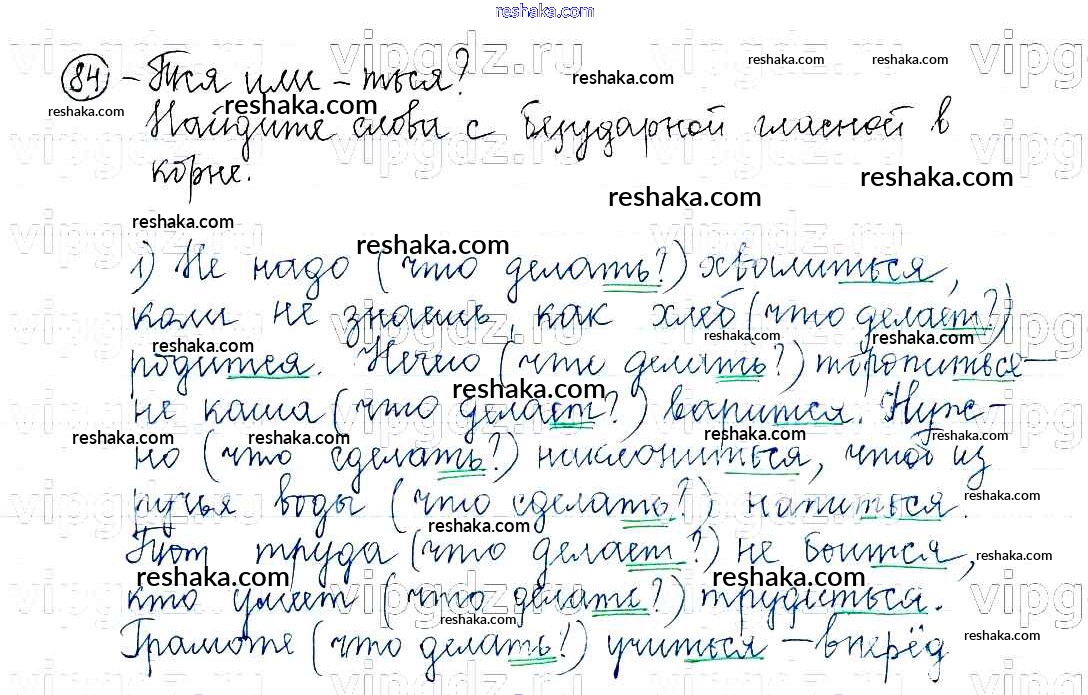 reshaka.com
84 -Тся или -ться?
Найдите слова с безударной гласной в
корне.
1) Не надо (что делать?) хвалиться,
коли не знаешь, как хлеб (что делает?)
родится. Нечего (что делать?) торопиться –
не каша (что делает?) варится. Нуж-
но (что сделать?) наклониться, чтоб из
ручья воды (что сделать?) напиться.
Тот труда (что делает?) не боится,
кто умеет (что делать?) трудиться.
Грамоте (что делать?) учиться – вперёд